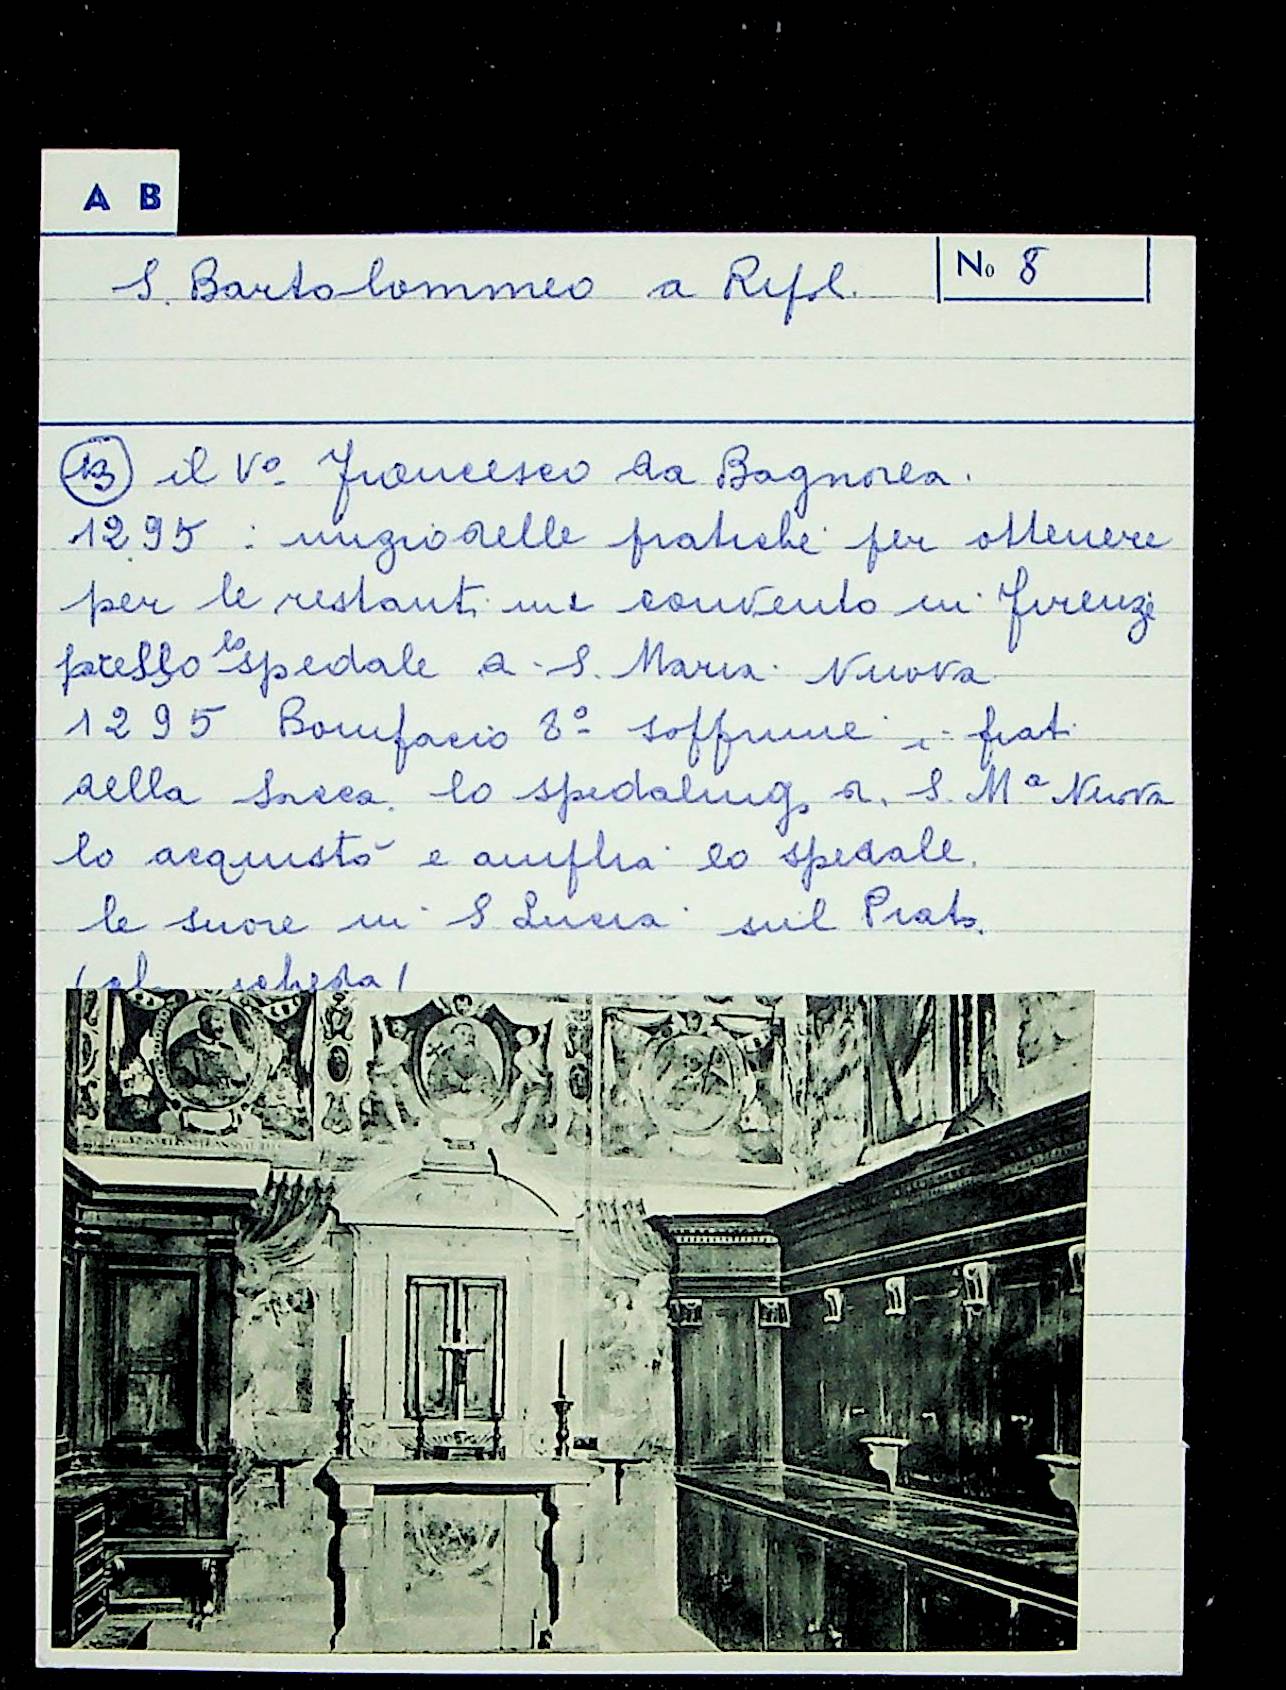 A B
S. Bartolommeo a Ripol.
No 8
13 il Vº Francesco da Bagnorea.
1295 : inizio delle pratiche per ottenere
per le restanti un convento in Firenze
presso lo spedale di S. Maria Nuova
1295 Bonifacio 8º soppime i frati
della Sacca. lo spedaling. di S. Mª Nuova
lo acquistò e amplia lo spedale.
le suore in S Lucia sul Prato.
scheda)